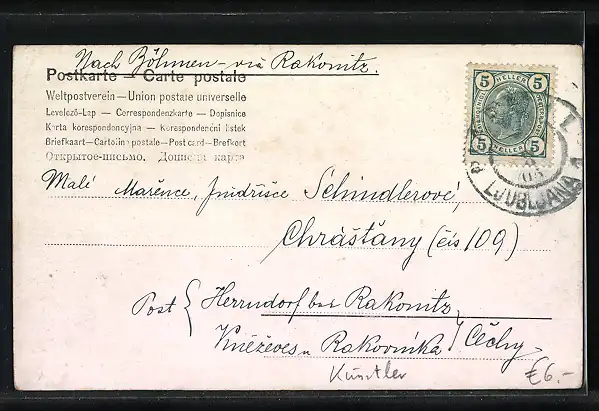 Nach Böhmen - via Rakonitz.
Postkarte — Carte postale
Weltpostverein — Union postale universelle
Levelező-Lap — Correspondenzkarte — Dopisnice
Karta korespondencyjna — Korespondenční listek
Briefkaart — Cartolina postale — Post card — Brefkort
Открытое письмо. Дописна карта
5 HELLER 5
5 HELLER 5
LJUBLJANA
Malé Mařence, Jindřišce Schindlerové,
Chrášťany (čis 109)
Post { Herrndorf bei Rakonitz
Kněževes u Rakovníka / Čechy
Künstler
€6.-